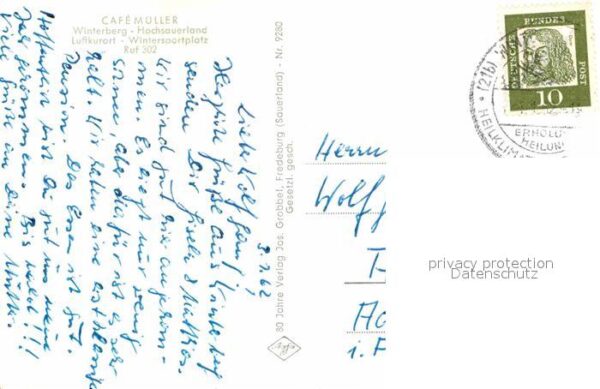 CAFÉ MÜLLER
Winterberg - Hochsauerland
Luftkurort - Wintersportplatz
Ruf 302
3.1.62
Liebe Wolfgang!
Herzliche Grüße aus Winterberg
senden Dir Gisela + Matthies.
Wir sind gut hier angekom-
men. Es liegt nur wenig
Schnee aber dafür ist es sehr
kalt. Wir haben eine
Pension. Das Essen ist gut.
Hoffentlich bist Du gut nach
Bis bald!!!
Viele Grüße an Deine Mutter.
80 Jahre Verlag Jos. Grobbel, Fredeburg (Sauerland) - Nr. 9280
Gesetzl. gesch.
Agfa
Herrn
Wolfg
i.
DEUTSCHE BUNDESPOST
10
(21b)
HEILKLIMA
ERHOLU
HEILUN
privacy protection
Datenschutz